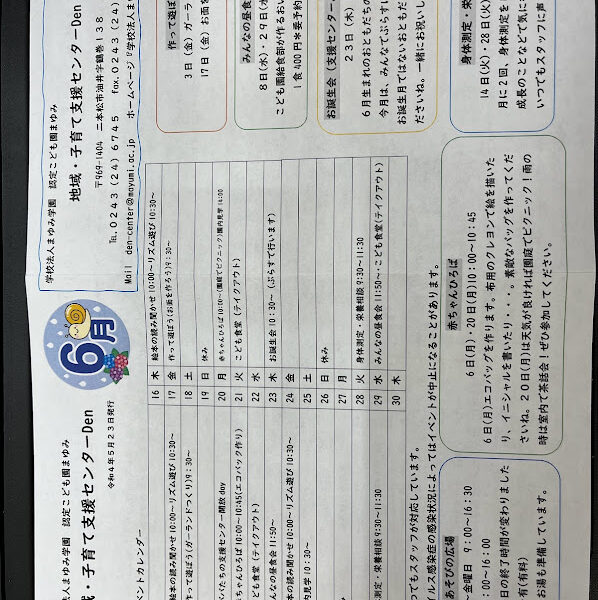 法人まゆみ学園 認定こども園まゆみ
域・子育て支援センターDen
令和4年5月23日発行
6月
学校法人まゆみ学園 認定こども園まゆみ
地域・子育て支援センターDen
〒969-1404 二本松市油井字鶴巻138
TEL.0243(24)6745 fax.0243(24)
Mail den-center@mayumi.ac.jp ホームページ
ベントカレンダー
本の読み聞かせ 10:00~リズム遊び 10:30~
作って遊ぼう(ガーランドつくり)9:30~
パパたちの支援センター開放 day
ちゃんひろば 10:00~10:45(エコバック作り)
ども食堂(テイクアウト)
みんなの昼食会 11:50~
本の読み聞かせ 10:00~リズム遊び 10:30~
内見学 10:30~
測定・栄養相談 9:30~11:30
16 木 絵本の読み聞かせ 10:00~リズム遊び 10:30~
17 金 作って遊ぼう(お面を作ろう)9:30~
18 土
19 日 休み
20 月 赤ちゃんひろば 10:00~(園庭でピクニック)園内見学 14:00
21 火 こども食堂(テイクアウト)
22 水
23 木 お誕生会 10:30~(ぷらすで行います)
24 金
25 土
26 日 休み
27 月
28 火 身体測定・栄養相談 9:30~11:30
29 水 みんなの昼食会 11:50~・こども食堂(テイクアウト)
30 木
つでもスタッフが対応しています。
ルス感染症の感染状況によってはイベントが中止になることがあります。
作って遊ぼ
3日(金)ガーラ
17日(金)お面を
みんなの昼食
8日(水)・29日(水
こども園給食部が作るおい
1食400円*要予約
お誕生会(支援センター
23日(木)
6月生まれのおともだちの
今月は、みんなでぷらすに
お誕生月ではないおともだ
ださいね。一緒にお祝いし
身体測定・栄
14日(火)・28日(火)
月に2回、身体測定を
成長のことなどで気に
いつでもスタッフに声
あそびの広場
金曜日 9:00~16:30
:00~16:00
日の終了時間が変わりました
有(有料)
お湯も準備しています。
赤ちゃんひろば
6日(月)・20日(月)10:00~10:45
6日(月)エコバッグを作ります。布用のクレヨンで絵を描いた
り、イニシャルを書いたり・・・。素敵なバッグを作ってくだ
さいね。20日(月)は天気が良ければ園庭でピクニック!雨の
時は室内で茶話会!ぜひ参加してください。